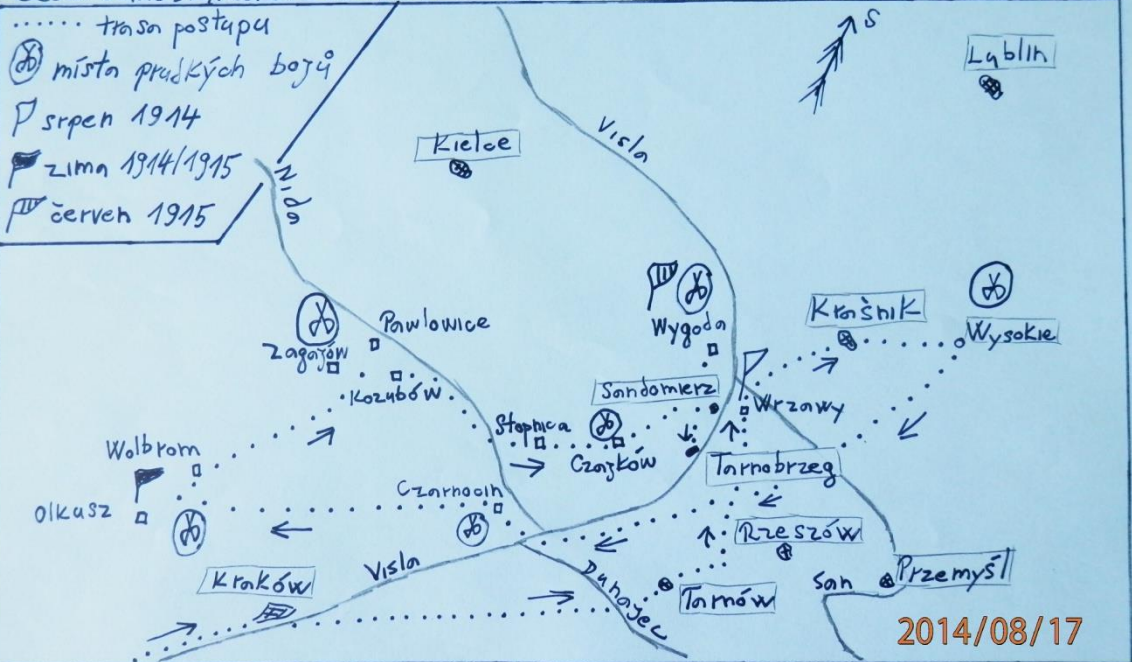 trasa postupu
místa prudkých bojů
srpen 1914
zima 1914/1915
červen 1915
S
Lublin
Kielce
Visla
Nida
Pawlowice
Zagajów
Kozubów
Wygoda
Krašnik
Wysokie
Sandomierz
Wrzawy
Stopnica
Czajków
Tarnobrzeg
Wolbrom
Olkusz
Czarnocin
Rzeszów
Kraków
Visla
Dunajec
Tarnów
San
Przemyśl
2014/08/17